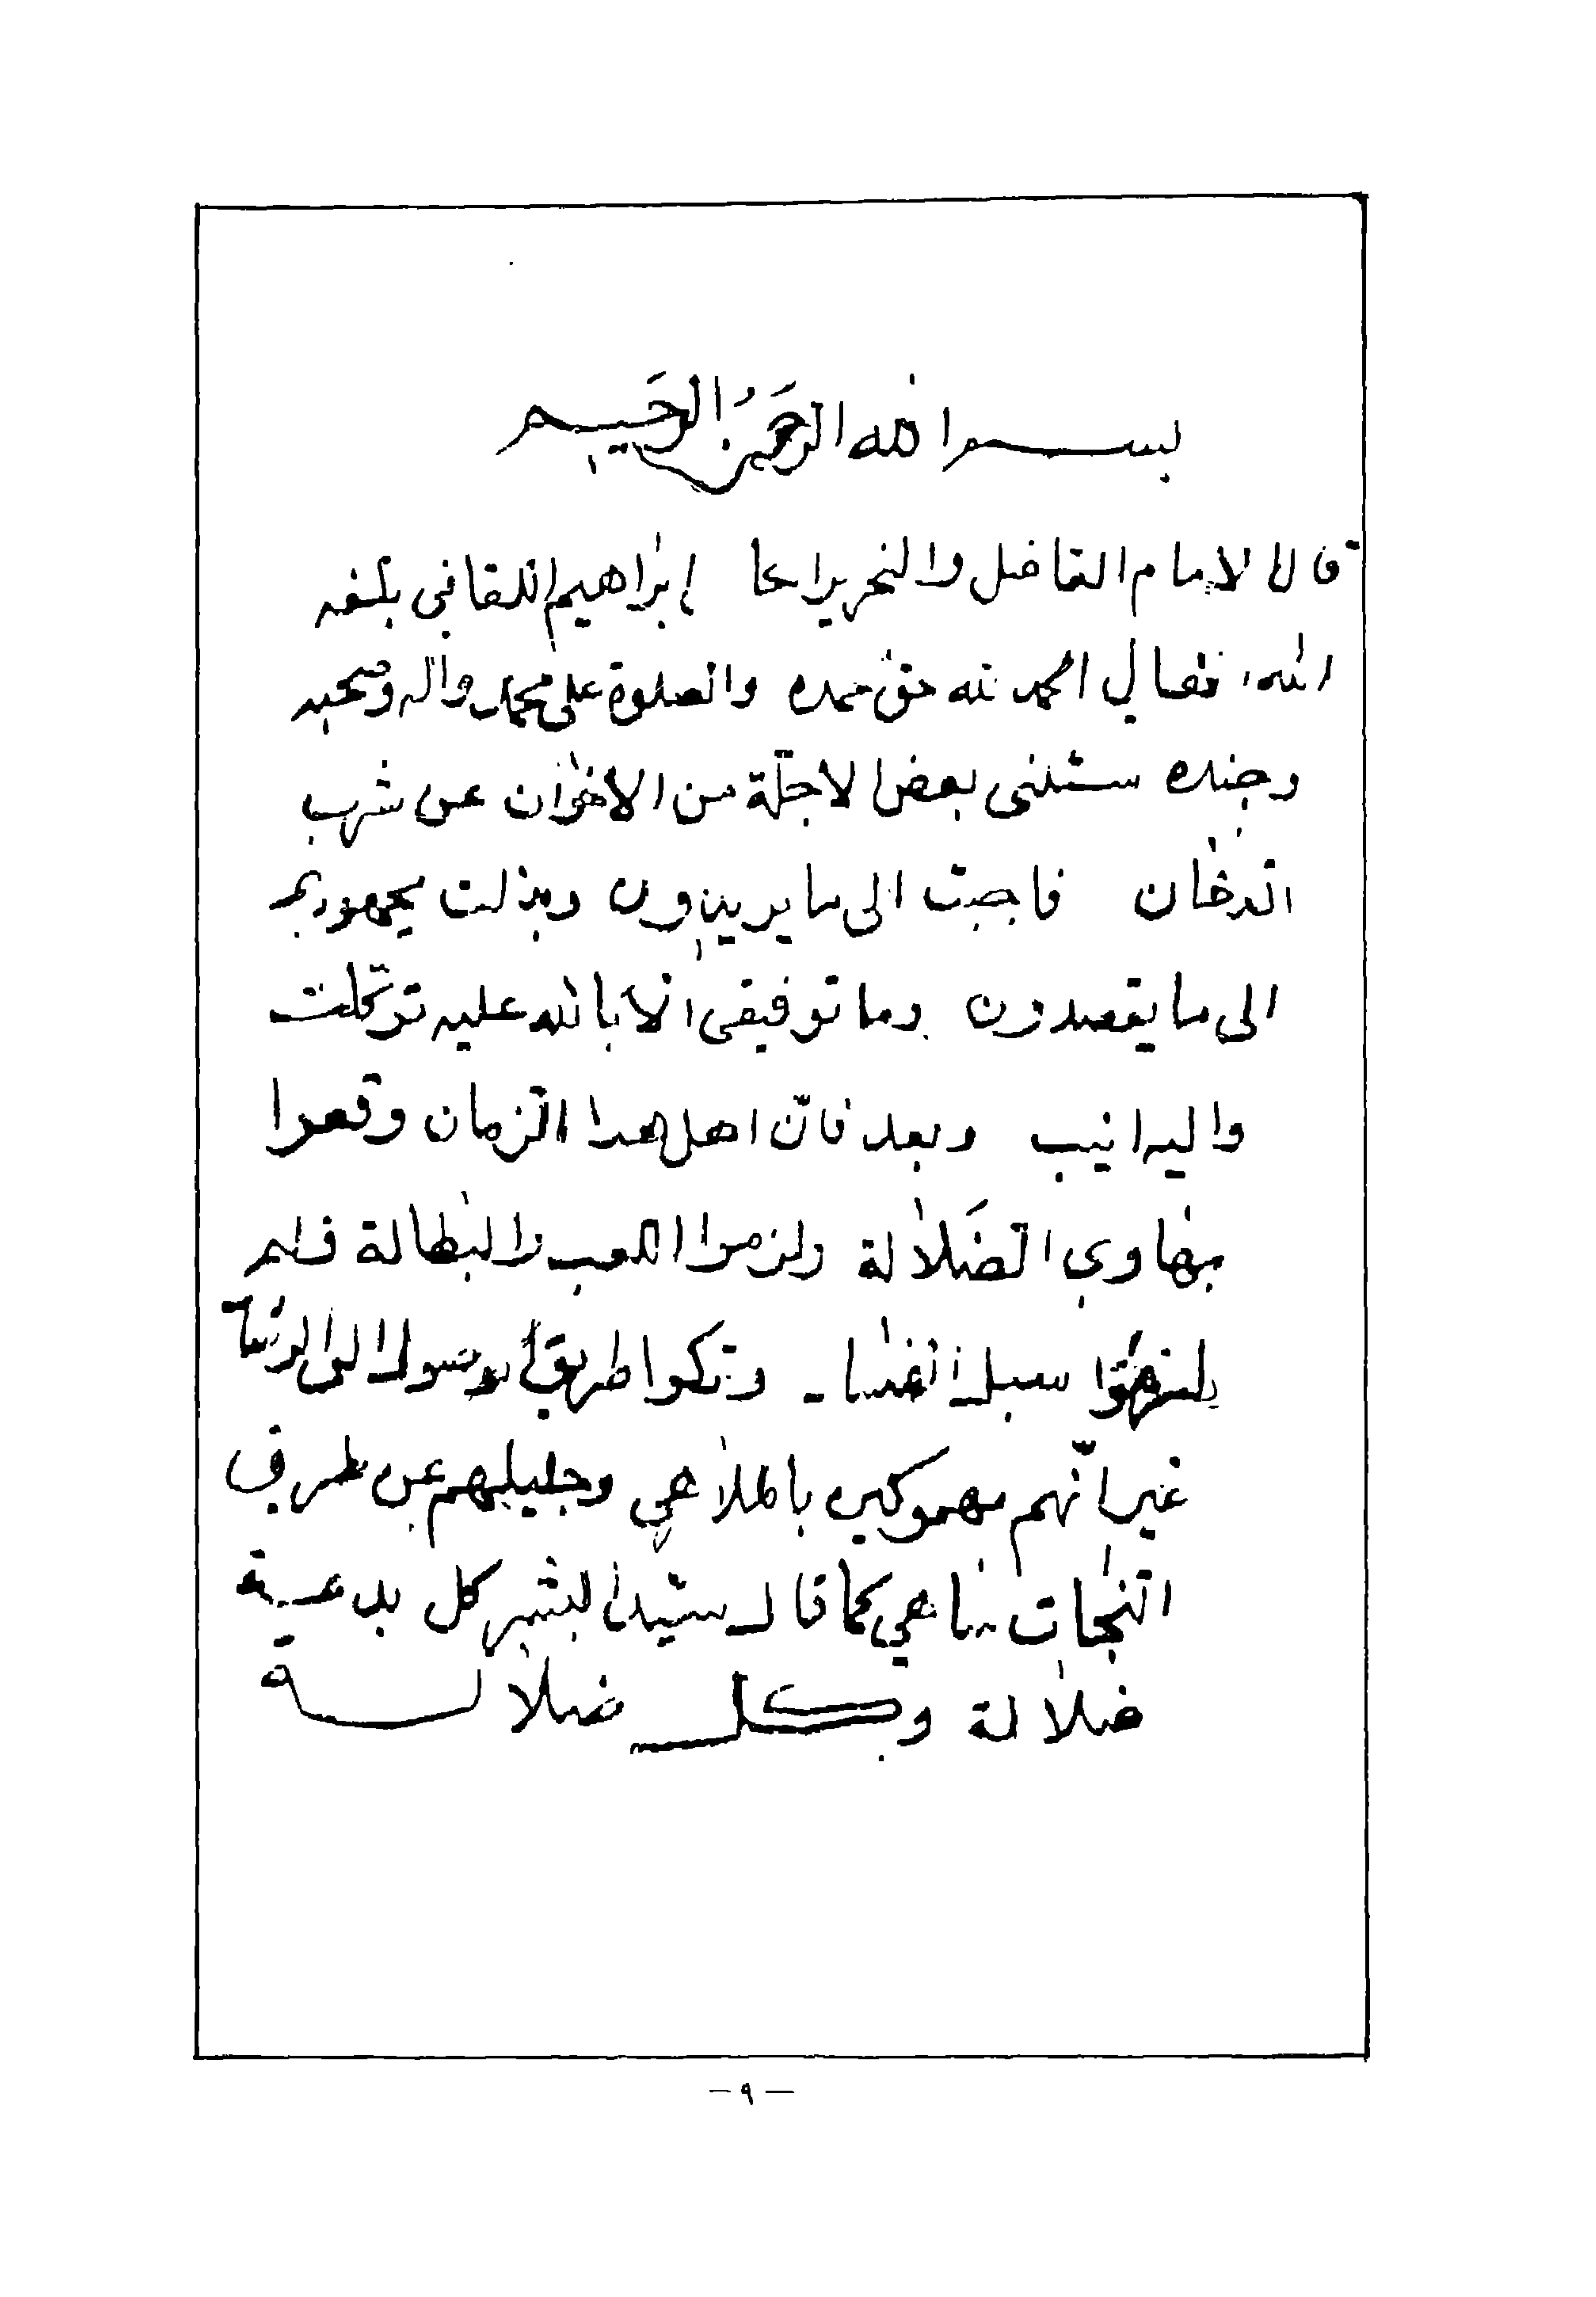 بسم الله الرحمن الرحيم
قال الامام الفاضل والنحرير ابراهيم اللقاني بلغه
الله فقال الحمد لله حق حمده والصلوة على محمد واله وصحبه
وجنده سئلنى بعض الاجلة من الاخوان عن شرب
الدخان فاجبت الى ما يريدون وبذلت
الى ما يقصدون وما توفيقى الا بالله عليه توكلت
واليه انيب وبعد فان اهل هذا الزمان وقعوا
بهاوي الضلالة ولزموا اللعب والبطالة فلم
سبل وتركوا طريق الوصول الى
غير انهم بالملاهي عن طرق
النجات كما قال سيد البشر كل بدعة
ضلالة وكل ضلالة
- ٩ -